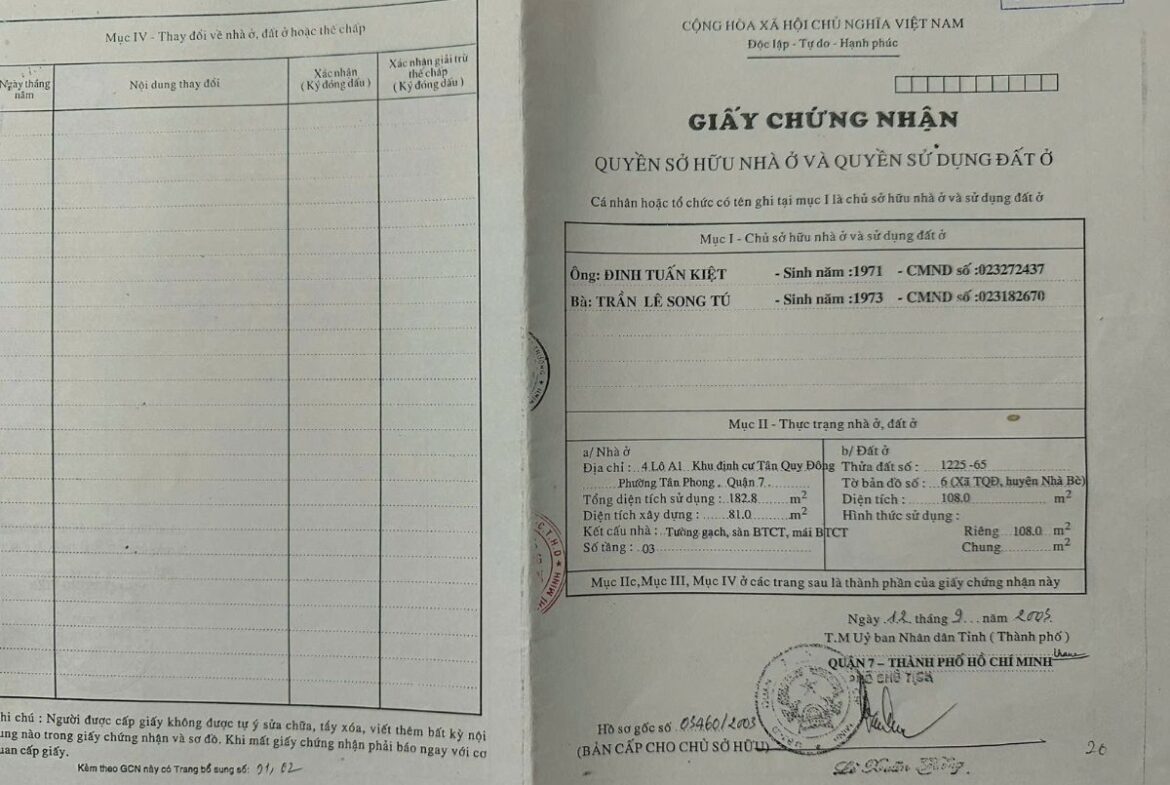 Mục IV - Thay đổi về nhà ở, đất ở hoặc thế chấp
Ngày tháng năm
Nội dung thay đổi
Xác nhận
(Ký đóng dấu)
Xác nhận giải trừ
thế chấp
(Ký đóng dấu)
hi chú : Người được cấp giấy không được tự ý sửa chữa, tẩy xóa, viết thêm bất kỳ nội
ung nào trong giấy chứng nhận và sơ đồ. Khi mất giấy chứng nhận phải báo ngay với cơ
uan cấp giấy.
Kèm theo GCN này có Trang bổ sung số: 01, 02
CỘNG HÒA XÃ HỘI CHỦ NGHĨA VIỆT NAM
Độc lập - Tự do - Hạnh phúc
GIẤY CHỨNG NHẬN
QUYỀN SỞ HỮU NHÀ Ở VÀ QUYỀN SỬ DỤNG ĐẤT Ở
Cá nhân hoặc tổ chức có tên ghi tại mục I là chủ sở hữu nhà ở và sử dụng đất ở
Mục I - Chủ sở hữu nhà ở và sử dụng đất ở
Ông: ĐINH TUẤN KIỆT - Sinh năm :1971 - CMND số :023272437
Bà: TRẦN LÊ SONG TÚ - Sinh năm :1973 - CMND số :023182670
Mục II - Thực trạng nhà ở, đất ở
a/ Nhà ở
Địa chỉ : 4 Lô A1 Khu định cư Tân Quy Đông
Phường Tân Phong . Quận 7
Tổng diện tích sử dụng : 182.8 m2
Diện tích xây dựng : 81.0 m2
Kết cấu nhà : Tường gạch, sàn BTCT, mái BTCT
Số tầng : 03
b/ Đất ở
Thửa đất số : 1225-65
Tờ bản đồ số : 6 (Xã TQĐ, huyện Nhà Bè)
Diện tích : 108.0 m2
Hình thức sử dụng :
Riêng 108.0 m2
Chung m2
Mục IIc,Mục III, Mục IV ở các trang sau là thành phần của giấy chứng nhận này
Ngày 12 tháng 9 năm 2003
T.M Uỷ ban Nhân dân Tỉnh ( Thành phố )
QUẬN 7 – THÀNH PHỐ HỒ CHÍ MINH
PHÓ CHỦ TỊCH
Hồ sơ gốc số 03460/2003
(BẢN CẤP CHO CHỦ SỞ HỮU)
26